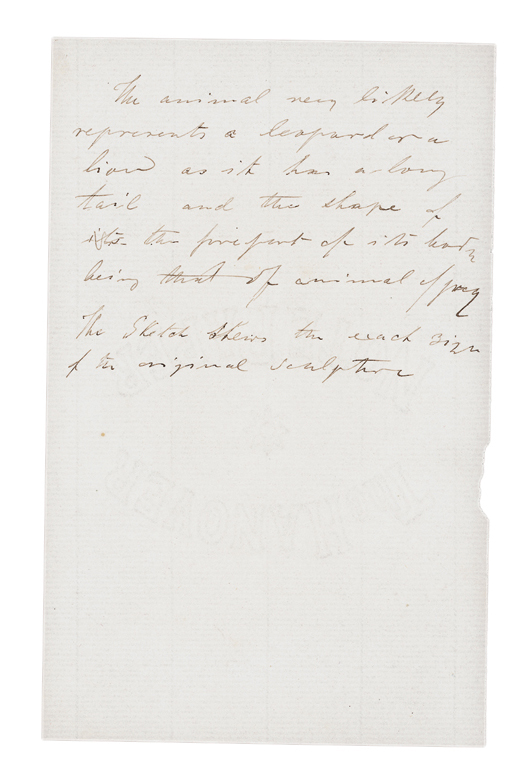 The animal very likely
represents a leopard or a
lion as it has a long
tail and the shape of
its the forepart of its body
being that of animal of prey
The Sketch shews the exact size
of the original sculpture
HANOVER